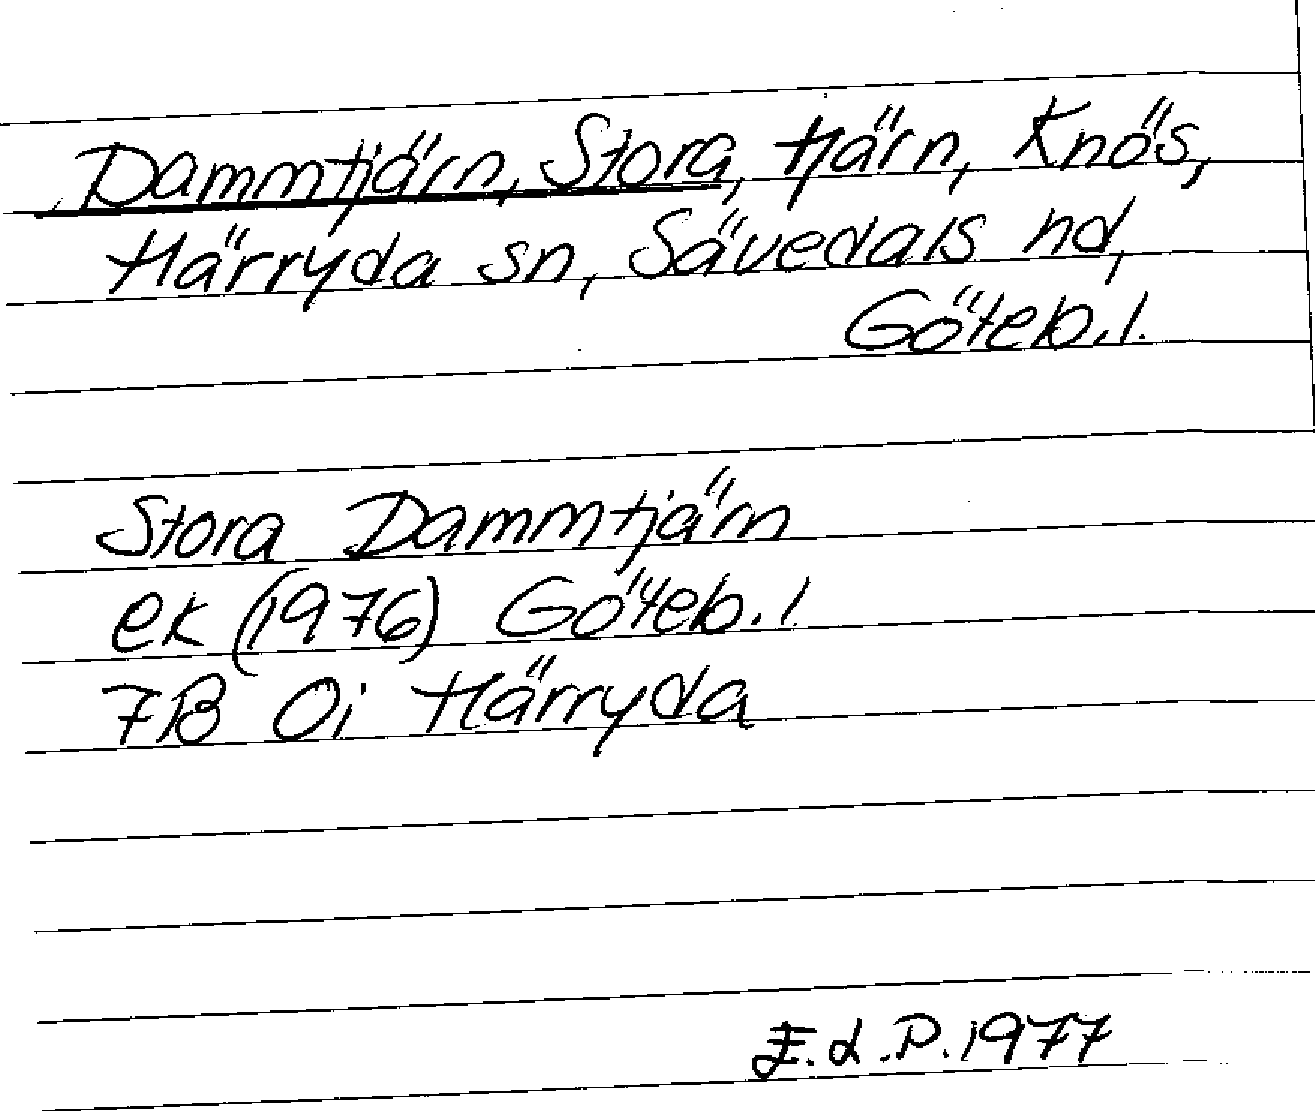 Dammtjärn, Stora, tjärn, Knös,
Härryda sn, Sävedals hd,
Göteb.l.
Stora Dammtjärn
ek (1976) Göteb.l.
7B 0i Härryda
E.d.P. 1977